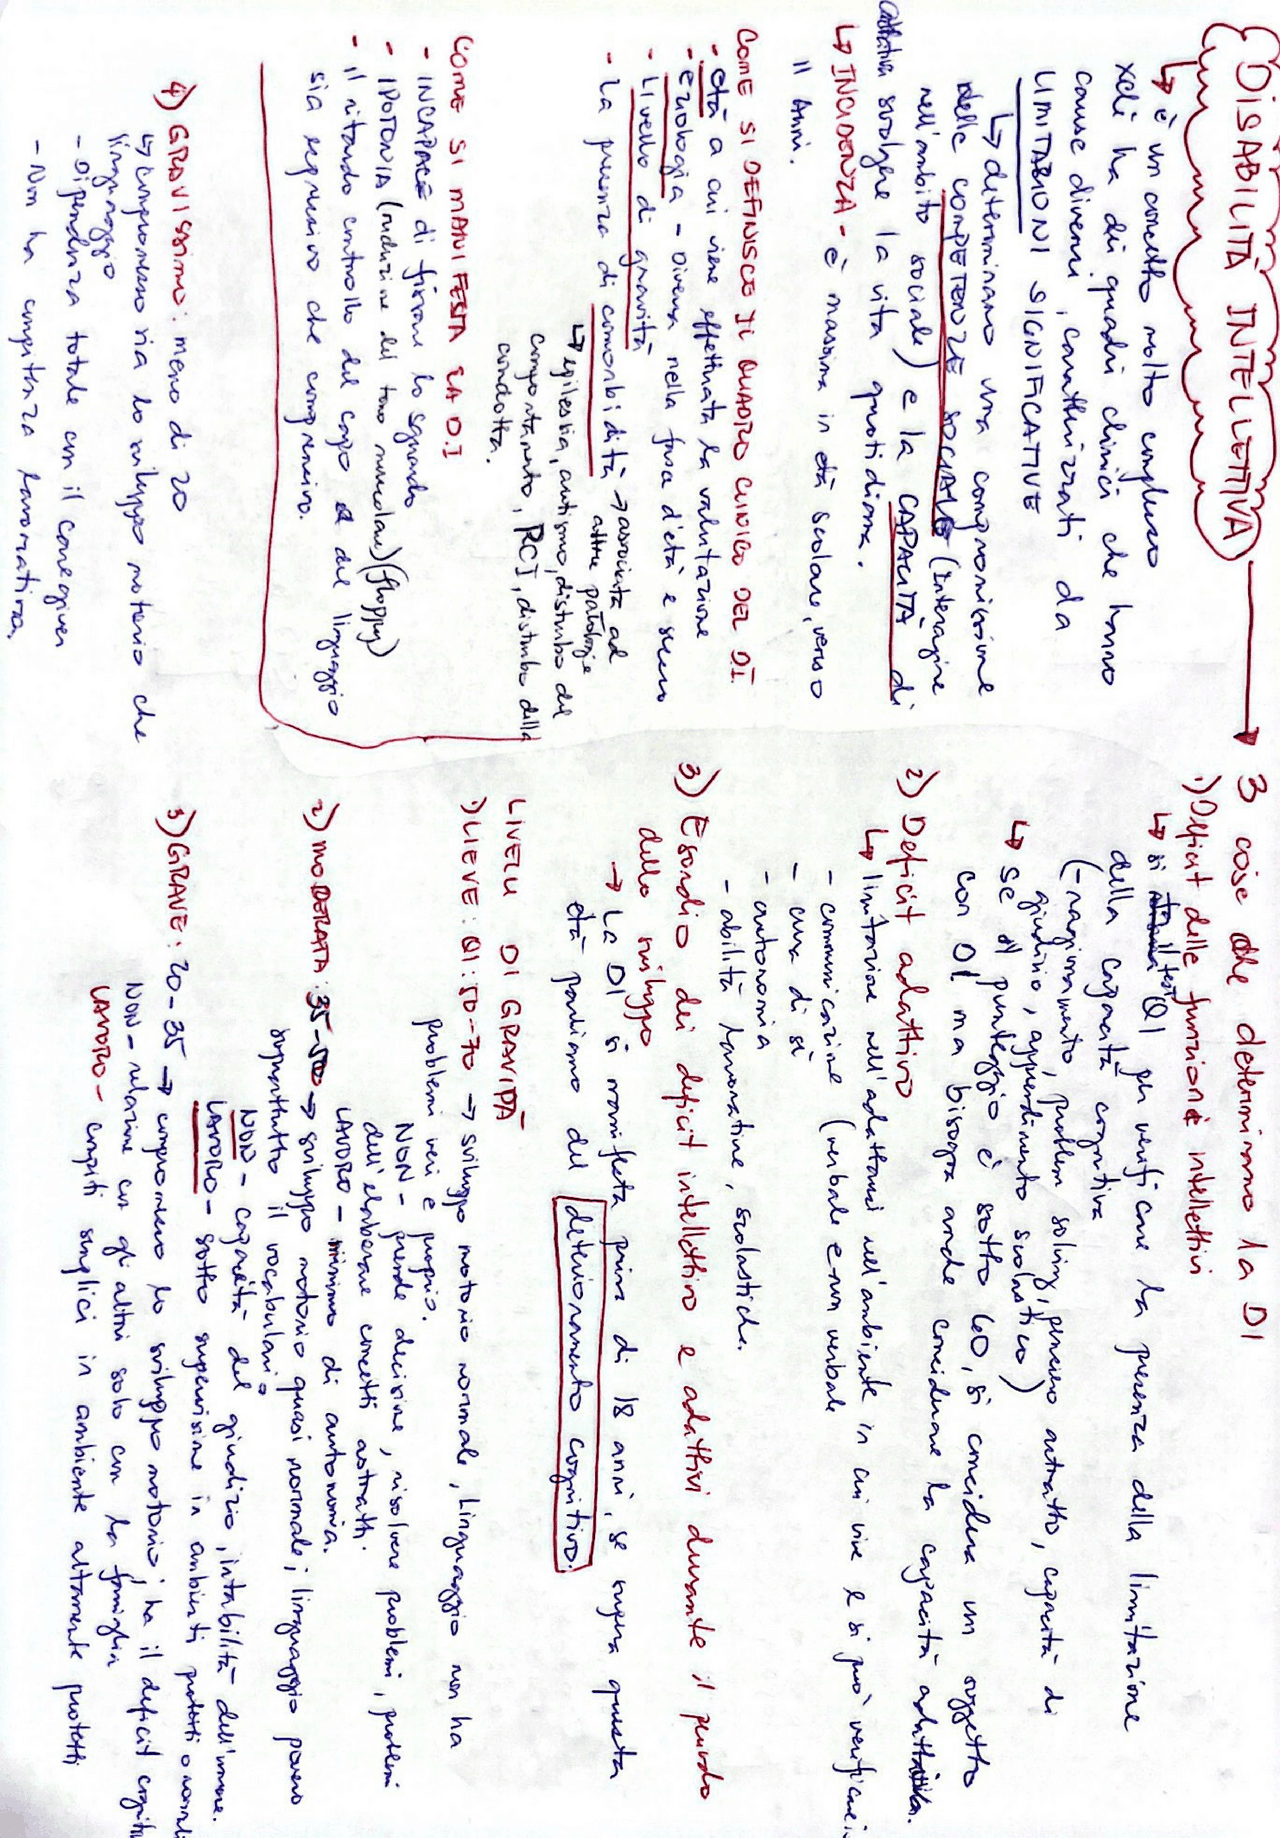 DISABILITÀ INTELLETTIVA
↳ è un concetto molto complesso
xchè ha dei quadri clinici che hanno
cause diverse, caratterizzati da
LIMITAZIONI SIGNIFICATIVE
↳ determinano una compromissione
delle COMPETENZE SOCIALI (interagire
nell'ambito sociale) e la CAPACITÀ di
svolgere la vita quotidiana.
↳ INCIDENZA - è massima in età scolare, verso
11 anni.
COME SI DEFINISCE IL QUADRO CLINICO DEL DI
- età a cui viene effettuata la valutazione
- eziologia - diversa nella fasce d'età e
- Livello di gravità
- La presenza di comorbidità → associata ad
altre patologie
↳ epilessia, autismo, disturbo del
comportamento, PCI, disturbo della
condotta.
COME SI MANIFESTA LA D.I
- INCAPACE di fissare lo sguardo
- IPOTONIA (riduzione del tono muscolare) (floppy)
- Il ritardo controllo del capo e del linguaggio
sia espressivo che comprensivo.
3 cose che determinano la DI
1) Deficit delle funzione intellettivi
↳ si il test QI per verificare la presenza della limitazione
della capacità cognitiva
(- ragionamento, problem solving, pensiero astratto, capacità di
giudizio, apprendimento scolastico)
↳ se il punteggio è sotto 60, si considera un soggetto
con DI ma bisogna anche considerare la capacità adattativa.
2) Deficit adattivo
↳ limitazione nell'adattarsi nell'ambiente in cui vive e si può verificare in
- comunicazione (verbale e non verbale
- cura di sé
- autonomia
- abilità lavorative, scolastiche.
3) Esordio dei deficit intellettivo e adattivi durante il periodo
dello sviluppo
→ La DI si manifesta prima di 18 anni, se supera questa
età parliamo del deterioramento cognitivo.
LIVELLI DI GRAVITÀ
1) LIEVE: QI: 50-70 → sviluppo motorio normale, linguaggio non ha
problemi veri e propri.
NON - prende decisione, risolvere problemi, problemi
dell'elaborare concetti astratti.
LAVORO - minimo di autonomia.
2) MODERATA: 35-50 → sviluppo motorio quasi normale; linguaggio povero
soprattutto il vocabulario
NON - capacità del giudizio, instabilità dell'umore.
LAVORO - sotto supervisione in ambienti protetti o normali
3) GRAVE: 20-35 → compromesso lo sviluppo motorio; ha il deficit
NON - relazione con gli altri solo con la famiglia
LAVORO - compiti semplici in ambiente altamente protetti
4) GRAVISSIMO: meno di 20
↳ compromesso sia lo sviluppo motorio che
linguaggio
- Dipendenza totale con il caregiver
- Non ha competenza lavorativa.